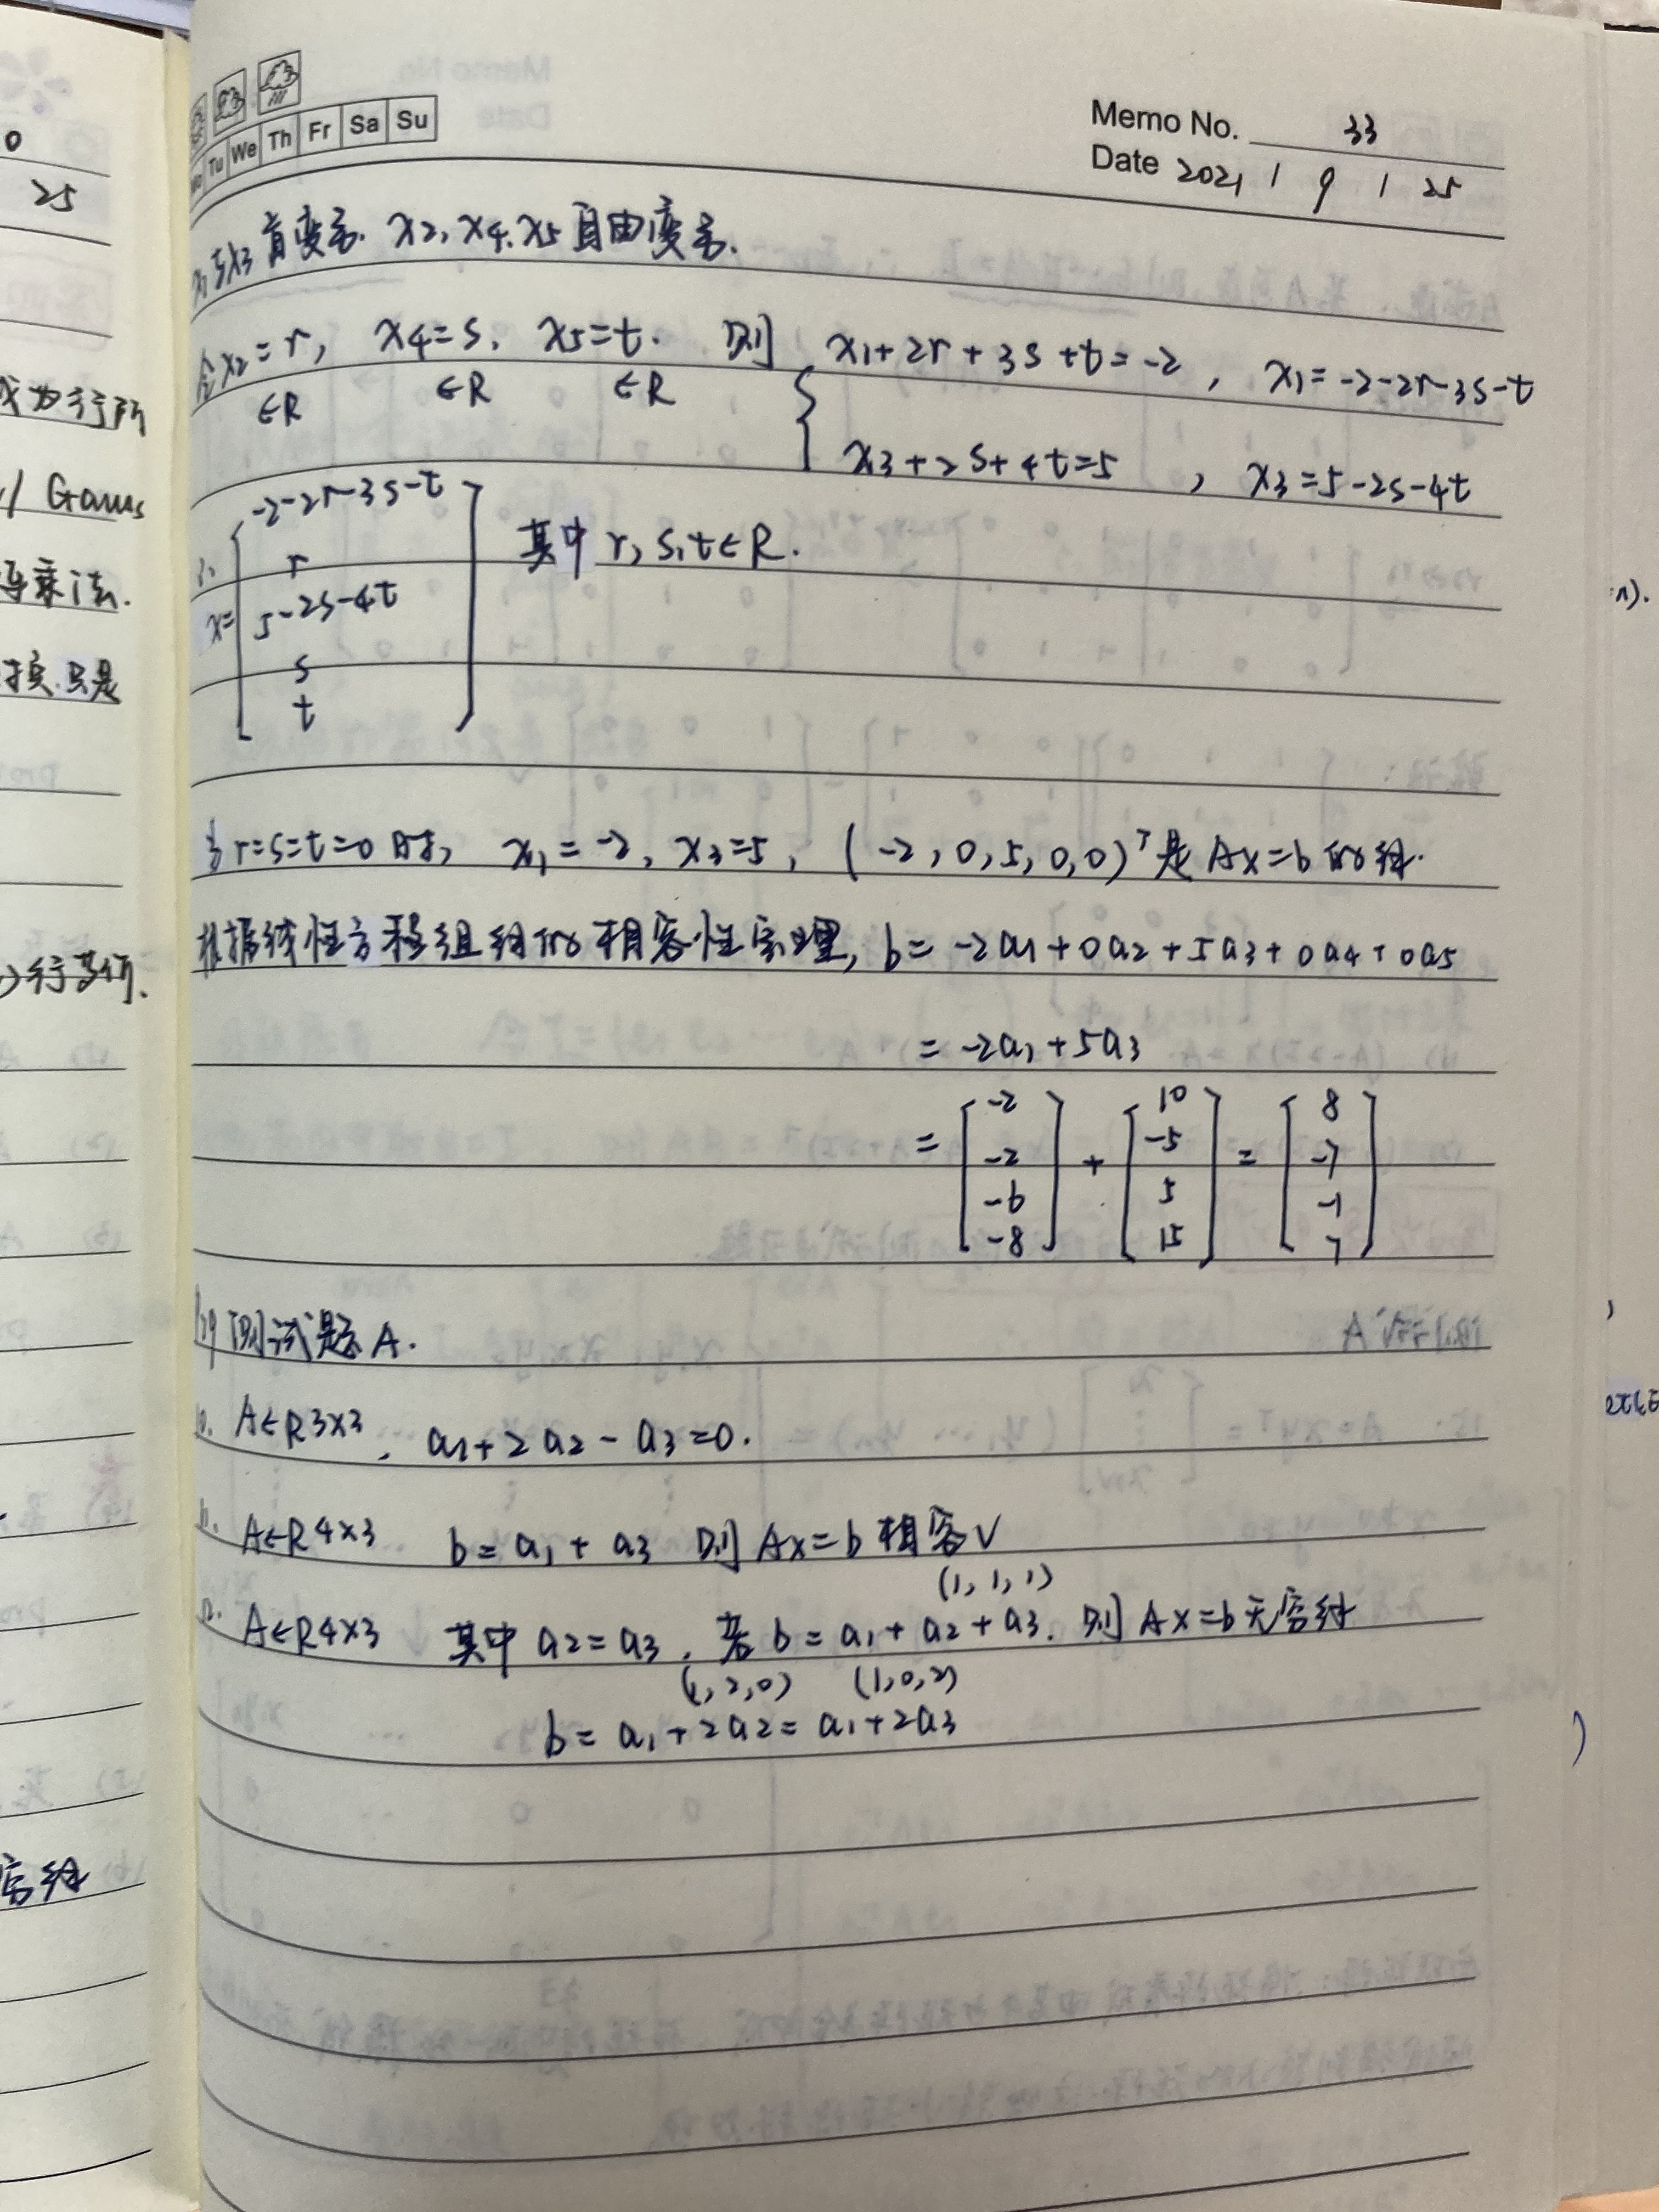 Tu We Th Fr Sa Su
Memo No. 33
Date 2021 / 9 / 25
x1与x3首变量. x2, x4, x5自由变量.
令x2=r, x4=s, x5=t. 则 { x1+2r+3s+t=-2, x1=-2-2r-3s-t
∈R ∈R ∈R
x3+2s+4t=5, x3=5-2s-4t
-2-2r-3s-t
r 其中 r, s, t∈R.
x= 5-2s-4t
s
t
当r=s=t=0时, x1=-2, x3=5, (-2, 0, 5, 0, 0)ᵀ是Ax=b的解.
根据线性方程组的相容性定理, b= -2a1+0a2+5a3+0a4+0a5
= -2a1+5a3
= [-2 -2 -6 -8] + [10 -5 5 15] = [8 -7 -1 7]
测试题A.
10. A∈R3x3, a1+2a2-a3=0.
11. A∈R4x3 b=a1+a3 则Ax=b相容√
(1, 1, 1)
12. A∈R4x3 其中a2=a3, 若b=a1+a2+a3. 则Ax=b无穷解
(1, 2, 0) (1, 0, 2)
b=a1+2a2=a1+2a3
0
25
Gauss
乘法.
换只是
行等价.
穷解
n).
)